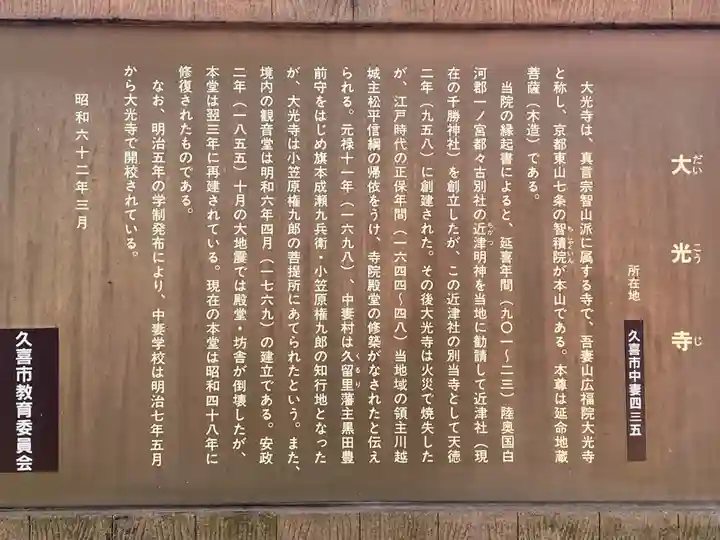 大光寺
だいこうじ
所在地
久喜市中妻四三五
大光寺は、真言宗智山派に属する寺で、吾妻山広福院大光寺
と称し、京都東山七条の智積院が本山である。本尊は延命地蔵
ちしゃくいん
菩薩（木造）である。
当院の縁起書によると、延喜年間（九〇一～二三）陸奥国白
河郡一ノ宮都々古別社の近津明神を当地に勧請して近津社（現
ちかつ
在の千勝神社）を創立したが、この近津社の別当寺として天徳
二年（九五八）に創建された。その後大光寺は火災で焼失した
が、江戸時代の正保年間（一六四四～四八）当地域の領主川越
城主松平信綱の帰依をうけ、寺院殿堂の修築がなされたと伝え
られる。元禄十一年（一六九八）、中妻村は久留里藩主黒田豊
くるり
前守をはじめ旗本成瀬九兵衛・小笠原権九郎の知行地となった
が、大光寺は小笠原権九郎の菩提所にあてられたという。また、
境内の観音堂は明和六年四月（一七六九）の建立である。安政
二年（一八五五）十月の大地震では殿堂・坊舎が倒壊したが、
本堂は翌三年に再建されている。現在の本堂は昭和四十八年に
修復されたものである。
なお、明治五年の学制発布により、中妻学校は明治七年五月
から大光寺で開校されている。
昭和六十二年三月
久喜市教育委員会